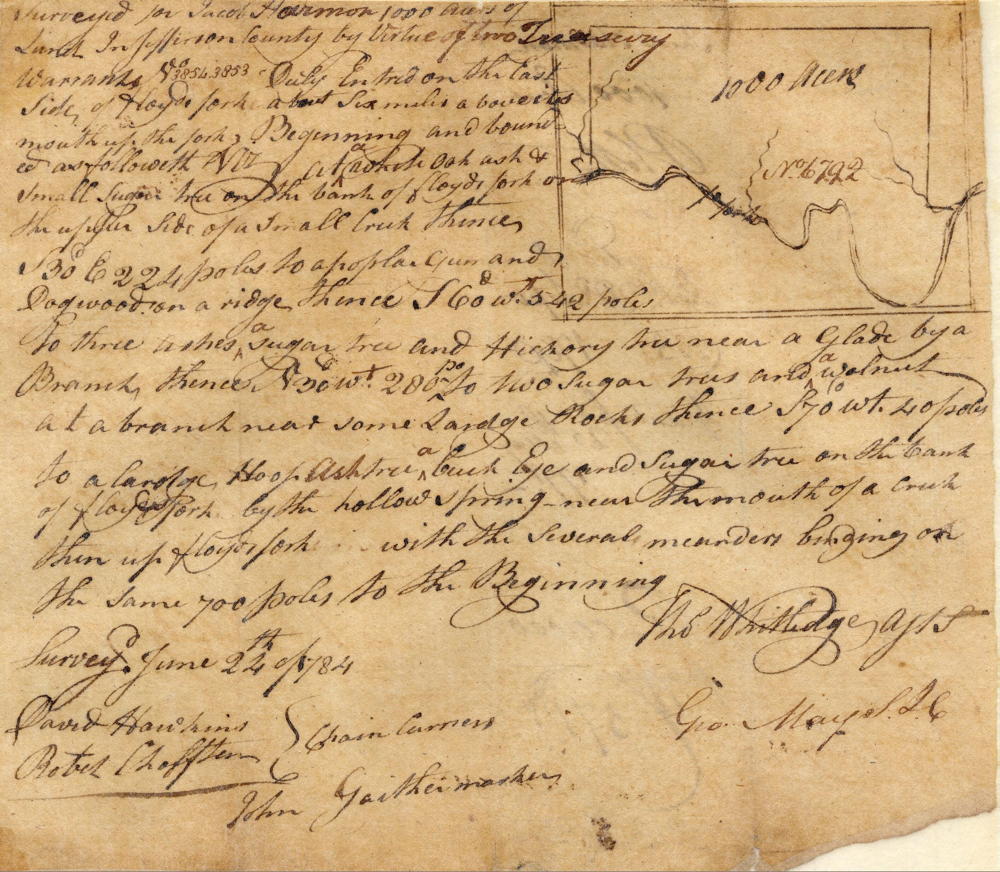 Surveyed for Jacob Harmon 1000 Acres of
Land In Jefferson County by Virtue of two Treasury
Warrants No 3854, 3853 Duly Entred on the East
Side of Floyds fork about Six miles above its
mouth up the fork, Beginning and bound
ed as followeth Viz At a white Oak ash &
Small Sugar tree on the bank of floyds fork on
the upper Side of a Small Creek thence
S30d E 224 poles to a poplar Gum and
Dogwood on a ridge thence S 60d Wt 542 poles
to three ashes a sugar tree and Hickory tree near a Glade by a
Branch, thence N30d Wt 280 po to two Sugar trees and a walnut
at a branch near some Lardge Rocks thence S70d Wt. 40 poles
to a lardge Hoop Ash tree a buck Eye and Sugar tree on the bank
of floyds fork by the hollow Spring near the mouth of a creek
then up floyds fork with the Several meanders binding on
the Same 700 poles to the Beginning
Tho Whitledge AJS
Survey'd June 24th of 1784
David Hawkins
Robet
Chain Carriers
John Gaither marker
Geo. May S.J.C
1000 Acers
No 6792
fork